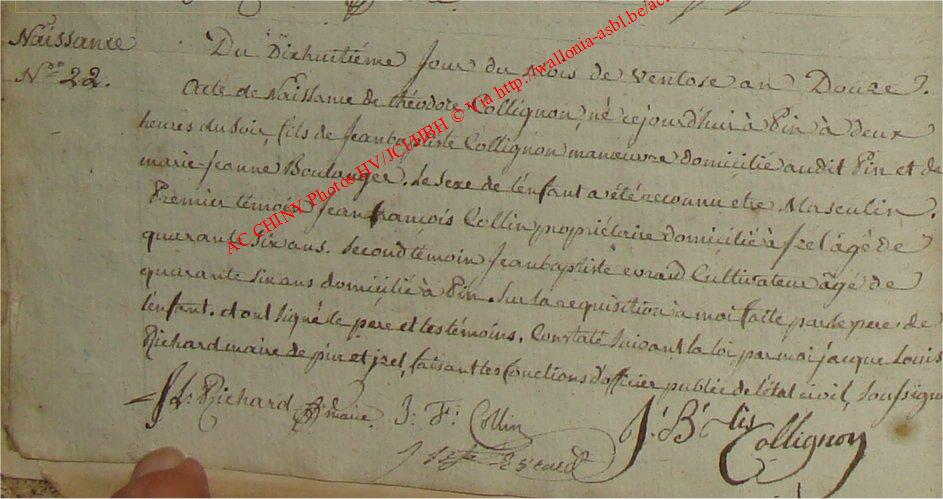 Naissance
N.° 22.
Du Dixhuitiéme jour du mois de ventose an Douze.
Acte de Naissance de théodore Collignon, né cejourd'hui à Pin à deux
heures du soir, fils de Jeanbaptiste Collignon manœuvre domicilié audit Pin et de
marie-jeanne Boulanger. Le sexe de l'enfant a été reconnu etre Masculin.
Premier témoin, Jean françois Collin propriétaire domicilié à jzel âgé de
quarante six ans. Second témoin Jeanbaptiste evrard Cultivateur âgé de
quarante six ans domicilié à Pin. Sur la requisition à moi faite par le pere de
l'enfant. et ont signé le pere et les témoins. Constaté suivant la loi par moi jacque Louis
Richard maire de pin et jzel, faisant les fonctions d'officier public de l'état civil, soussigné
J. L. Richard maire. J: F: Collin
J. B. tis Collignon
AC CHINY Photos HV/JCL/HBH © Via http://wallonia-asbl.be/ac